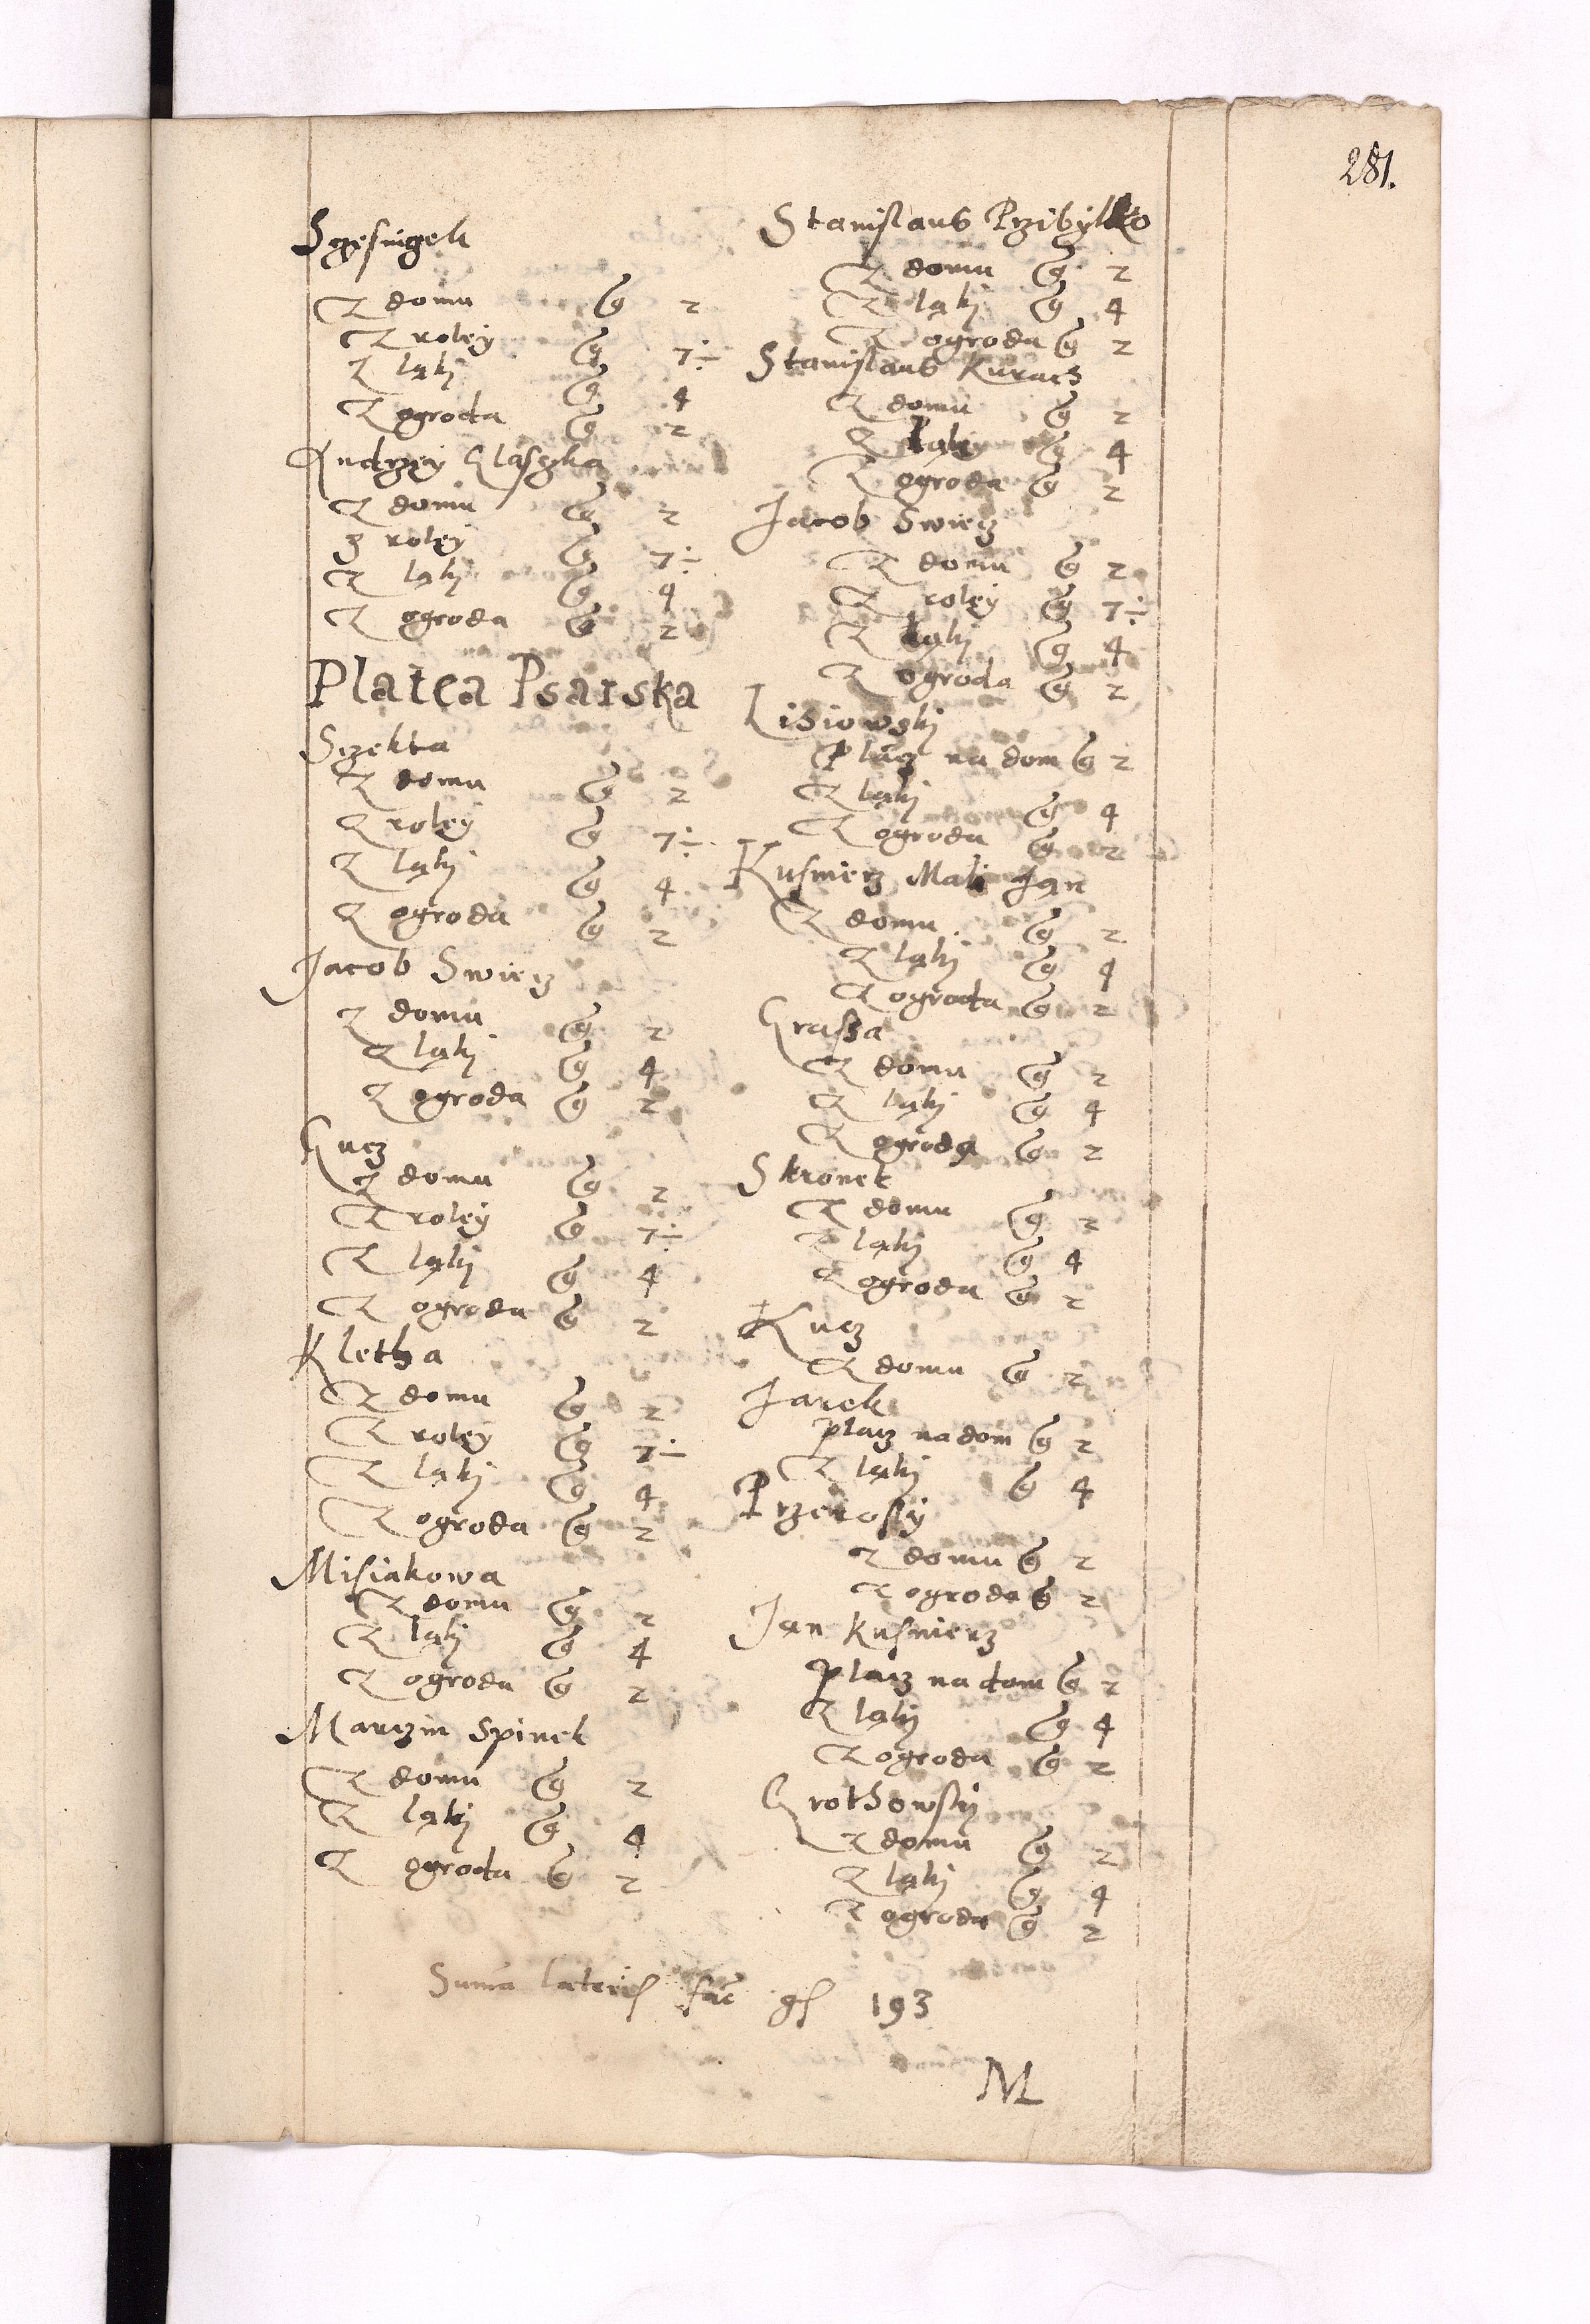 281.
Szęsnigek
Z domu g 2
Z roley g 7÷
Z ląki g 4
Z ogroda g 2
Andrzey Glaszka
Z domu g 2
z roley g 7÷
Z ląki g 4
Z ogroda g 2
Platea Psarska
Szekta
Z domu g 2
Z roley g 7÷
Z ląki g 4
Z ogroda g 2
Jacob Swięz
Z domu g 2
Z ląki g 4
Z ogroda g 2
Gucz
Z domu g 2
Z roley g 7÷
Z ląki g 4
Z ogroda g 2
Kletha
Z domu g 2
Z roley g 7÷
Z ląki g 4
Z ogroda g 2
Misiakowa
Z domu g 2
Z ląki g 4
Z ogroda g 2
Marczin Spinek
Z domu g 2
Z ląki g 4
Z ogroda g 2
Stanislaus Przibylko
Z domu g 2
Z ląki g 4
Z ogroda g 2
Stanislaus Kuracz
Z domu g 2
Z ląki g 4
Z ogroda g 2
Jacob Swięz
Z domu g 2
Z roley g 7÷
Z ląki g 4
Z ogroda g 2
Lisiowski
Placz na dom g 2
Z ląki g 4
Z ogroda g 2
Kusnierz Mali Jan
Z domu g 2
Z ląki g 4
Z ogroda g 2
Grasza
Z domu g 2
Z ląki g 4
Z ogroda g 2
Skronek
Z domu g 2
Z ląki g 4
Z ogroda g 2
Kucz
Z domu g 2
Jarek
placz na dom g 2
Z ląki g 4
Przerosly
Z domu g 2
Z ogroda g 2
Jan Kusnierz
Placz na dom g 2
Z ląki g 4
Z ogroda g 2
Grothowsky
Z domu g 2
Z ląki g 4
Z ogroda g 2
Suma lateris fac gs 193
M